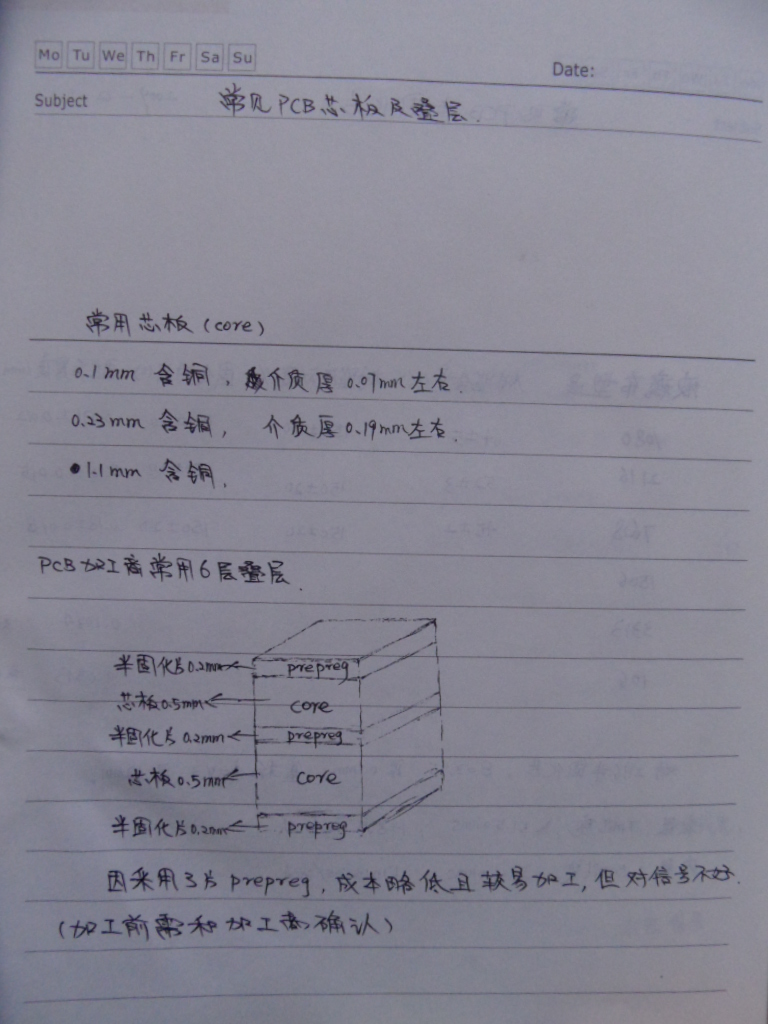 Mo Tu We Th Fr Sa Su
Date:
Subject 常见PCB芯板及叠层.
常用芯板(core)
0.1mm 含铜, 介质厚0.07mm左右.
0.23mm 含铜, 介质厚0.19mm左右.
•1.1mm 含铜.
PCB加工商常用6层叠层.
半固化片0.2mm prepreg
芯板0.5mm core
半固化片0.2mm prepreg
芯板0.5mm core
半固化片0.2mm prepreg
因采用3片prepreg, 成本略低且较易加工, 但对信号不好.
(加工前需和加工商确认)